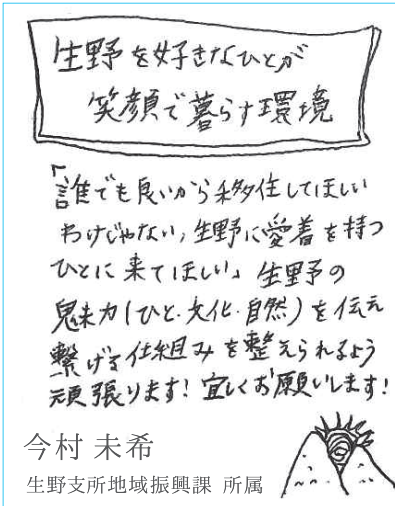 生野を好きなひとが
笑顔で暮らす環境
「誰でも良いから移住してほしい
わけじゃない、生野に愛着を持つ
ひとに来てほしい」生野の
魅力(ひと・文化・自然)を伝え
繋げる仕組みを整えられるよう
頑張ります!宜しくお願いします!
今村 未希
生野支所地域振興課 所属